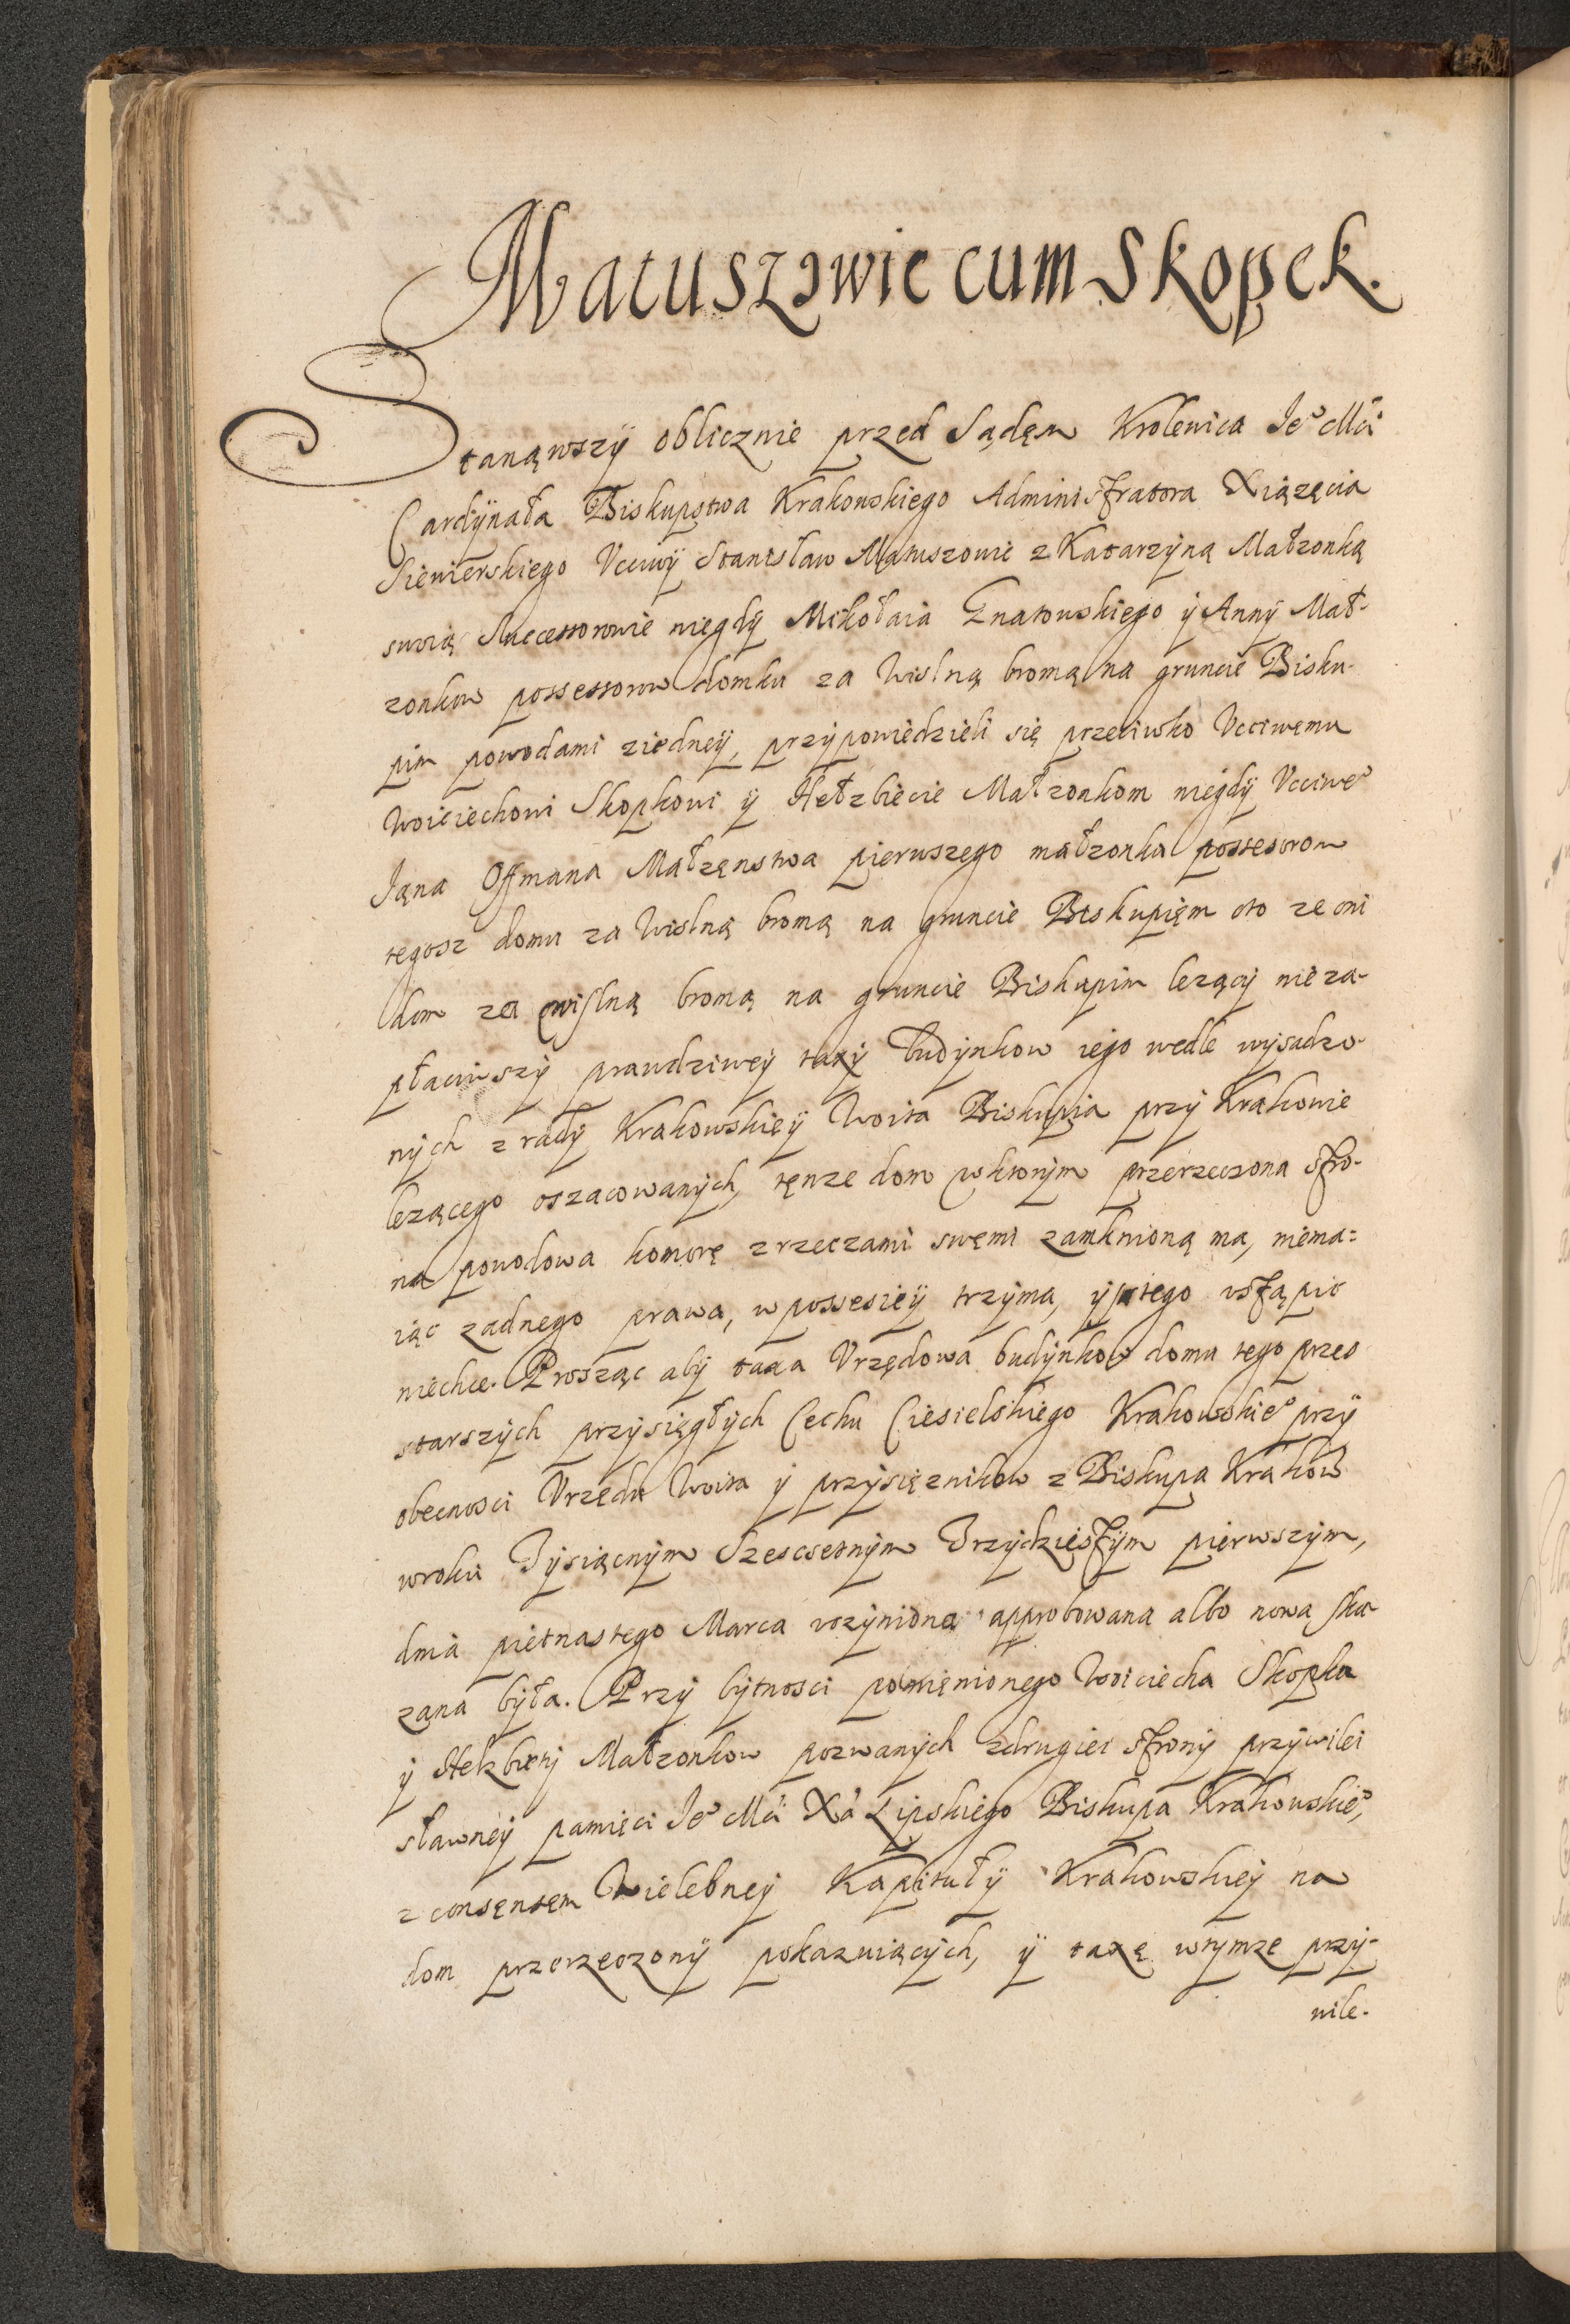 Matuszowie cum Skopek.
Stanąwszÿ oblicznie przed Sądęm Krolewica Je° Mći
Cardÿnała Biskupstwa Krakowskiego Administratora Xiązęcia
Siewierskiego Vcciwÿ Stanisław Matuszowic z Katarzÿną Małzonką
swoią Successorowie niegdÿ Mikołaia Gnatowskiego ÿ Annÿ Mał-
zonkow possessorow domku za Wislną broną na gruncie Bisku-
pim powodami ziedneÿ, przÿpowiedzieli się przeciwko Vcciwemu
Woiciechowi Skopkowi ÿ Helzbiecie Małzonkom niegdÿ Vcciwe°
Jana Offmana Małzęnstwa pierwszego małzonka possesorom
tegosz domu za Wislną broną na gruncie Biskupięm oto ze oni
dom za wislną broną na gruncie Biskupim lezącÿ nie za-
płaciwszÿ prawdziweÿ taxÿ budÿnkow iego wedle wÿsadzo-
nÿch z radÿ Krakowskięÿ Woita Biskupia przÿ Krakowie
lezącego oszacowanÿch, tęnze dom wktorÿm przerzeczona stro-
na powodowa komorę z rzeczami swęmi zamknioną ma, niema=
iąc zadnego prawa, w possesięÿ trzÿma, ÿ ztego vstąpic
niechce. Prosząc abÿ taxa Vrzędowa budÿnkow domu tego przes
starszÿch przÿsięgłÿch Cechu Ciesielskiego Krakowskie° przÿ
obecnosci Vrzędu Woita ÿ przÿsięznikow z Biskupa Krakow
wroku Tÿsiącnÿm Szescsetnÿm Trzÿdziestÿm pierwszÿm,
dnia pietnastego Marca vczÿniona approbowana albo nowa ska-
zana bÿła. Przÿ bÿtnosci pomięnionego Woiciecha Skopka
ÿ Helzbietÿ Małzonkow pozwanÿch zdrugiei stronÿ przÿwilei
sławneÿ pamięci Je° Mći Xa Lipskiego Biskupa Krakowskie°,
z consęnsęm Wielebneÿ Kapitułÿ Krakowskieÿ na
dom przerzęczonÿ pokazuiącÿch, ÿ taxę wtÿmze przÿ-
wile-